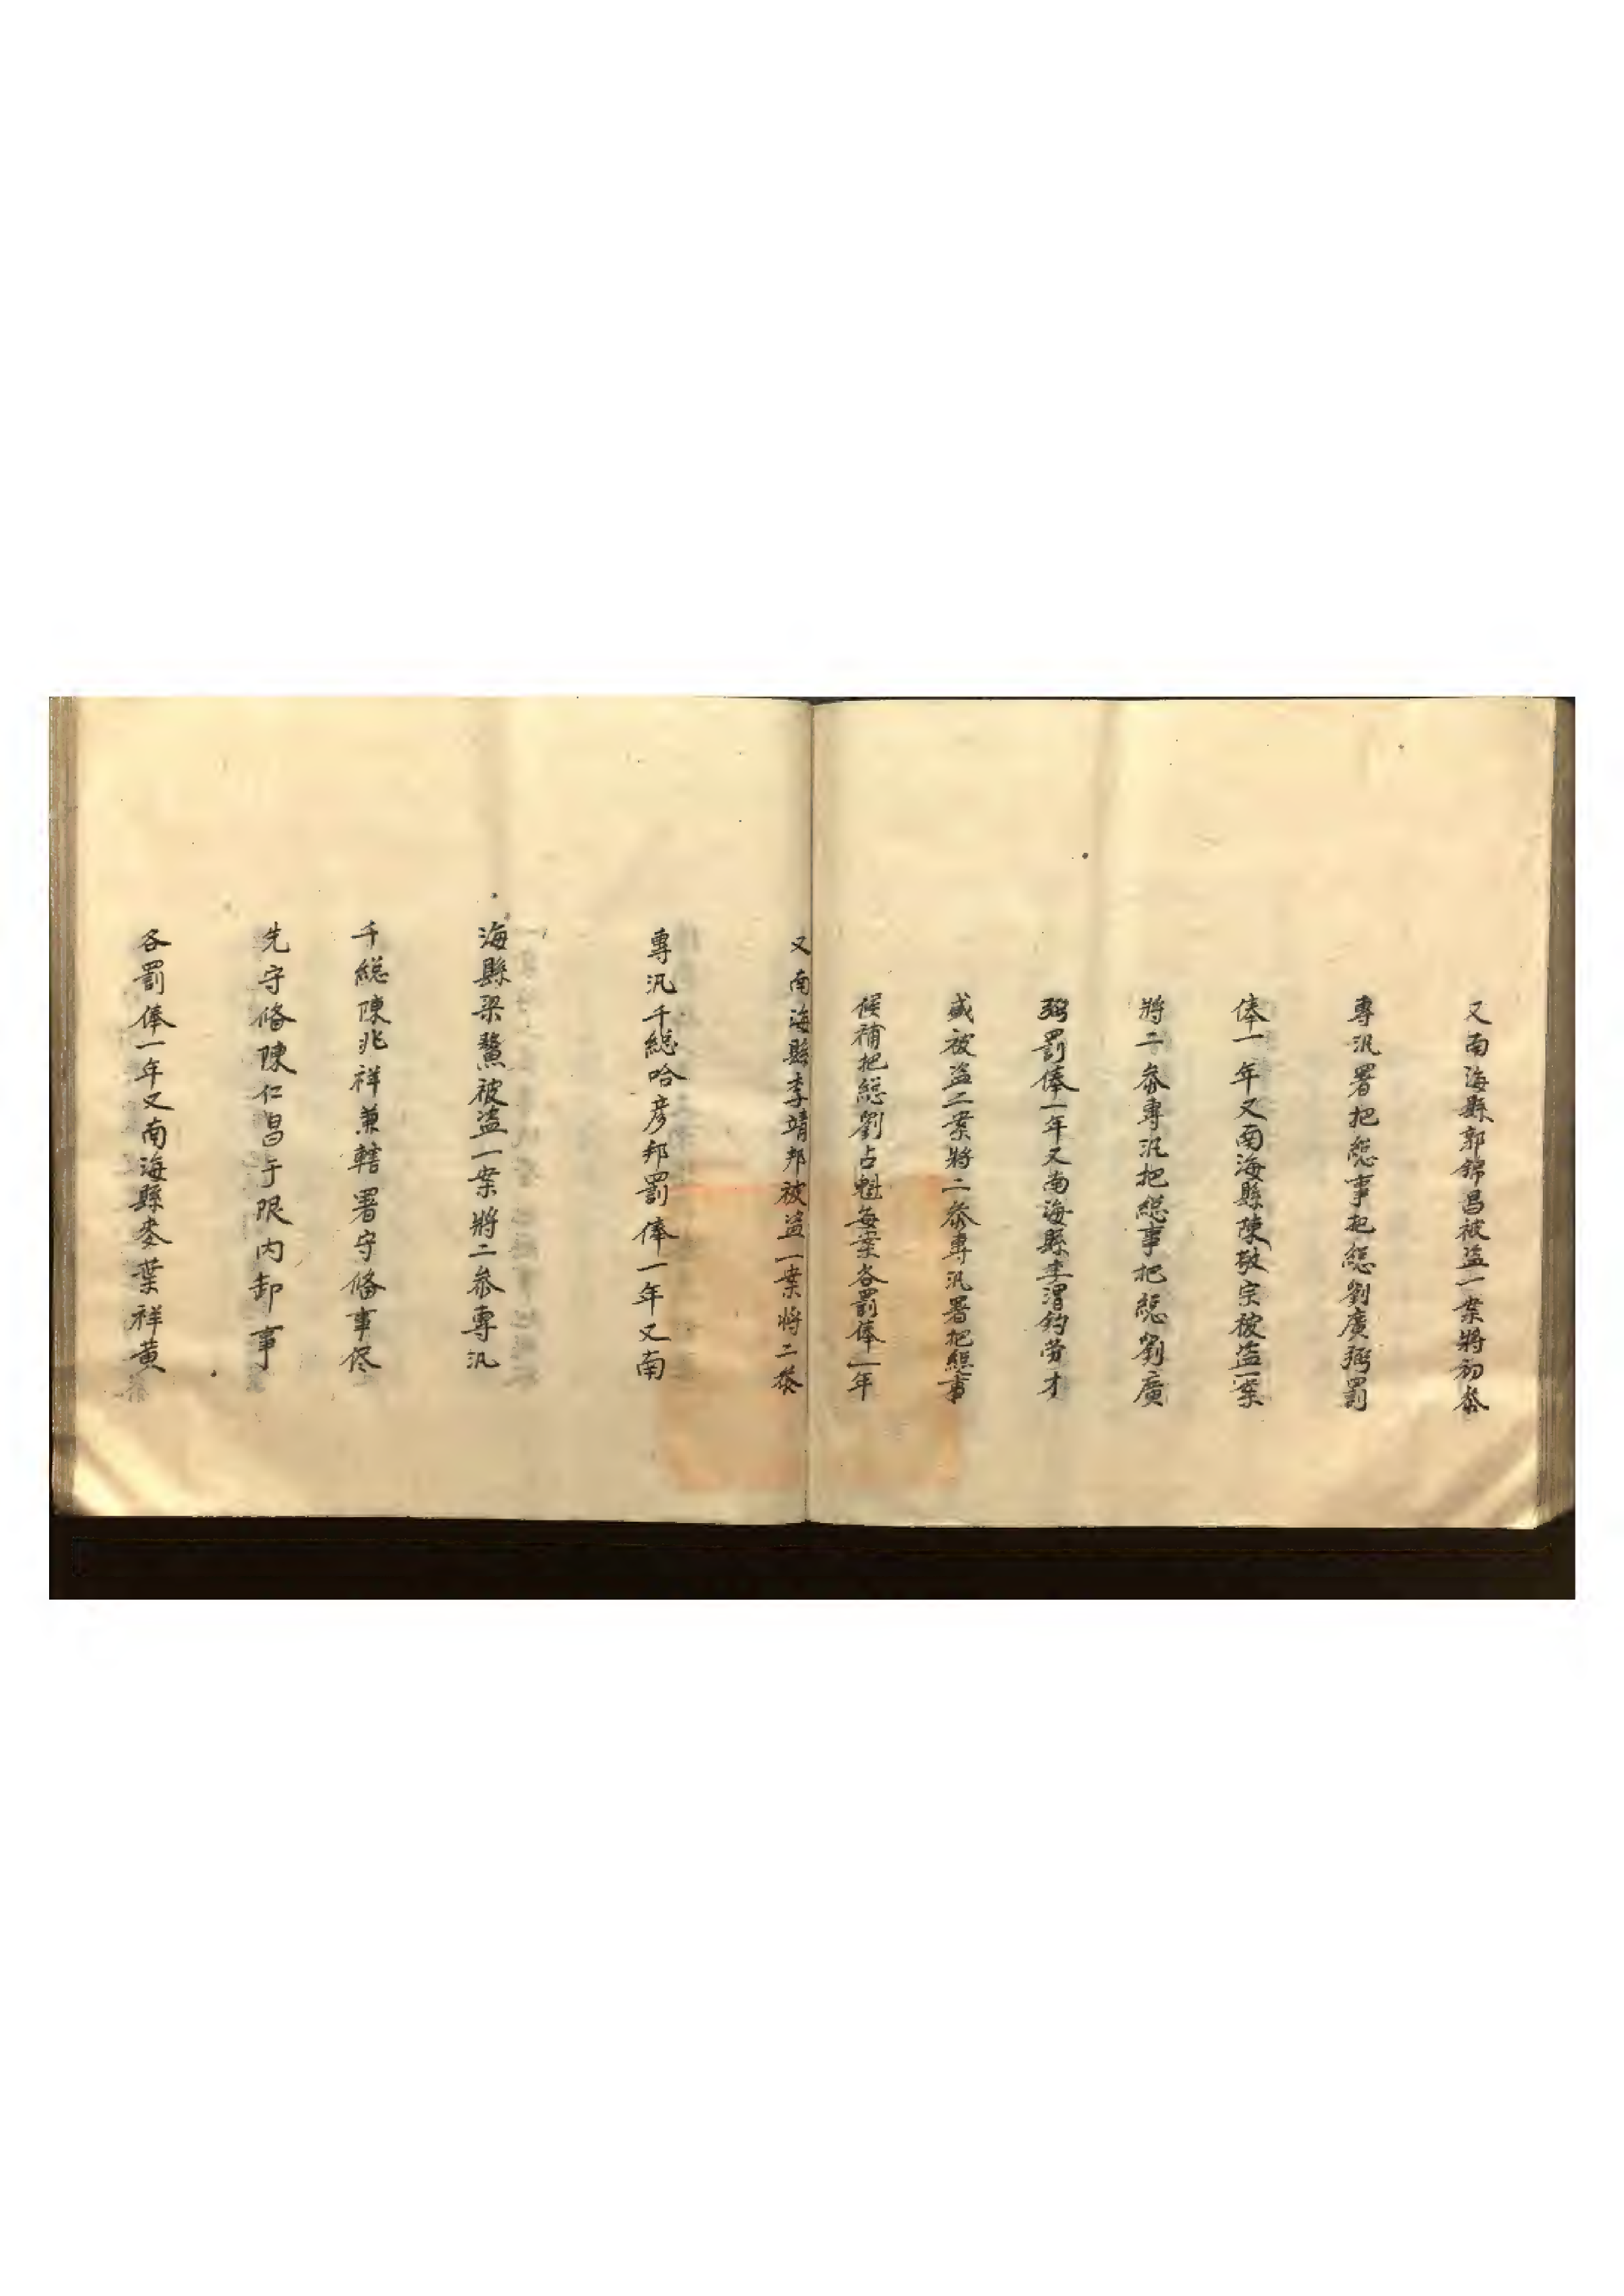 又南海縣郭錦昌被盗一案將初叅
專汛署把緫事把緫劉廣弼罰
俸一年又南海縣陳敬宗被盗一案
將二叅專汛把緫事把緫劉廣
弼罰俸一年又南海縣李渭鈞勞才
盛被盗二案將二叅專汛署把緫事
候補把緫劉占魁每案各罰俸一年
又南海縣李靖邦被盗一案將二叅
專汛千緫哈彦邦罰俸一年又南
海縣梁鰲被盗一案將二叅專汛
千緫陳兆祥兼轄署守俻事侭
先守俻陳仁昌于限内卸事
各罰俸一年又南海縣麥葉祥黄